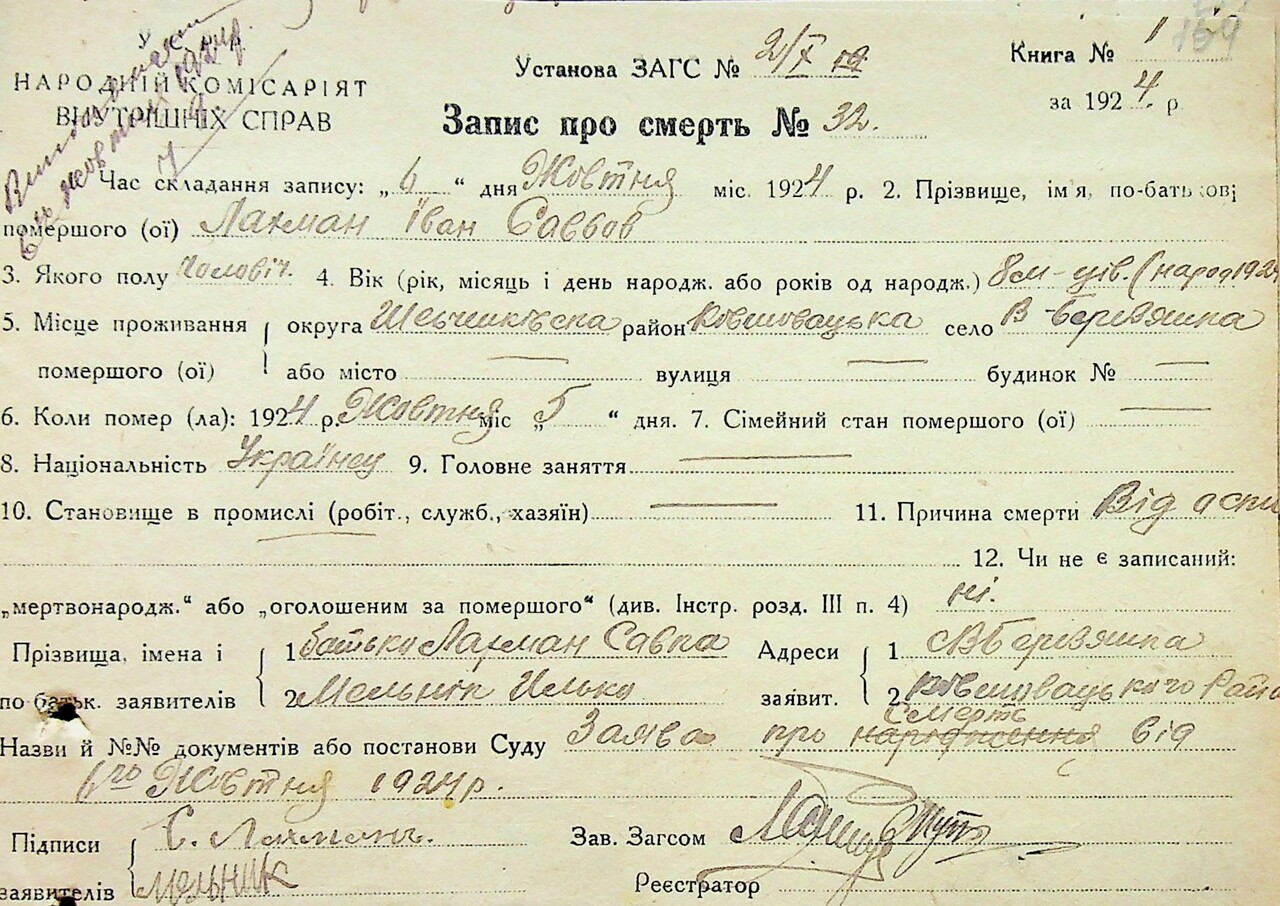 НАРОДНІЙ КОМІСАРІЯТ
ВНУТРІШНІХ СПРАВ
Установа ЗАГС №
Книга № 1
159
за 1924 р
Запис про смерть № 32.
Час складання запису: „6“ дня Жовтня міс. 1924 р. 2. Прізвище, ім'я, по-батькові
помершого (ої) Лахман Іван Саввов
3. Якого полу чоловіч. 4. Вік (рік, місяць і день народж. або років од народж.) 8 м-ців. (народ 192
5. Місце проживання округа Шевченківська район Ковшовацька село В-Березянка
помершого (ої) або місто — вулиця — будинок № —
6. Коли помер (ла): 1924 р. Жовтня міс „5“ дня. 7. Сімейний стан помершого (ої) —
8. Національність Українец 9. Головне заняття —
10. Становище в промислі (робіт., служб., хазяїн) — 11. Причина смерти Від аспи
12. Чи не є записаний:
„мертвонародж.“ або „оголошеним за помершого“ (див. Інстр. розд. III п. 4) ні.
Прізвища, імена і 1 батько Лахман Савка Адреси 1 с В Березянка
по батьк. заявителів 2 Мельник Илько заявит. 2. Ковшовацького Райо
Смерть
Назви й №№ документів або постанови Суду Заява про народження від
6го Жовтня 1924 р.
Підписи С. Лахманъ. Зав. Загсом
заявителів мельник
Реєстратор